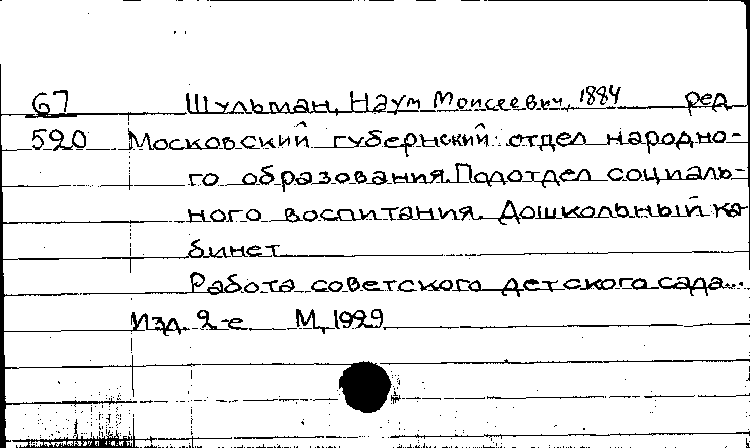 67 Шульман, Наум Моисеевич, 1884 ред
590 Московский губернский отдел народно-
го образования. Подотдел социаль-
ного воспитания. Дошкольный ка
бинет
Работа советского детского сада...
Изд. 2-е М, 1929